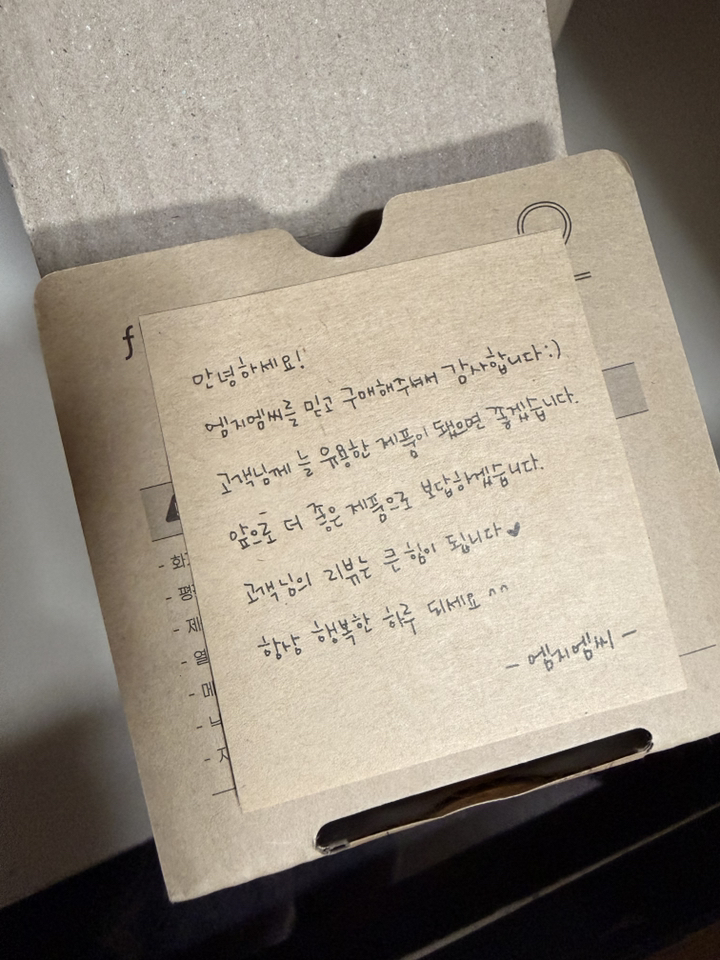 f
안녕하세요!
엠지엠씨를 믿고 구매해주셔서 감사합니다:)
고객님께 늘 유용한 제품이 됐으면 좋겠습니다.
앞으로 더 좋은 제품으로 보답하겠습니다.
고객님의 리뷰는 큰 힘이 됩니다♥
항상 행복한 하루 되세요 ^^
- 엠지엠씨 -
- 화
- 평
- 제
- 열
- 메